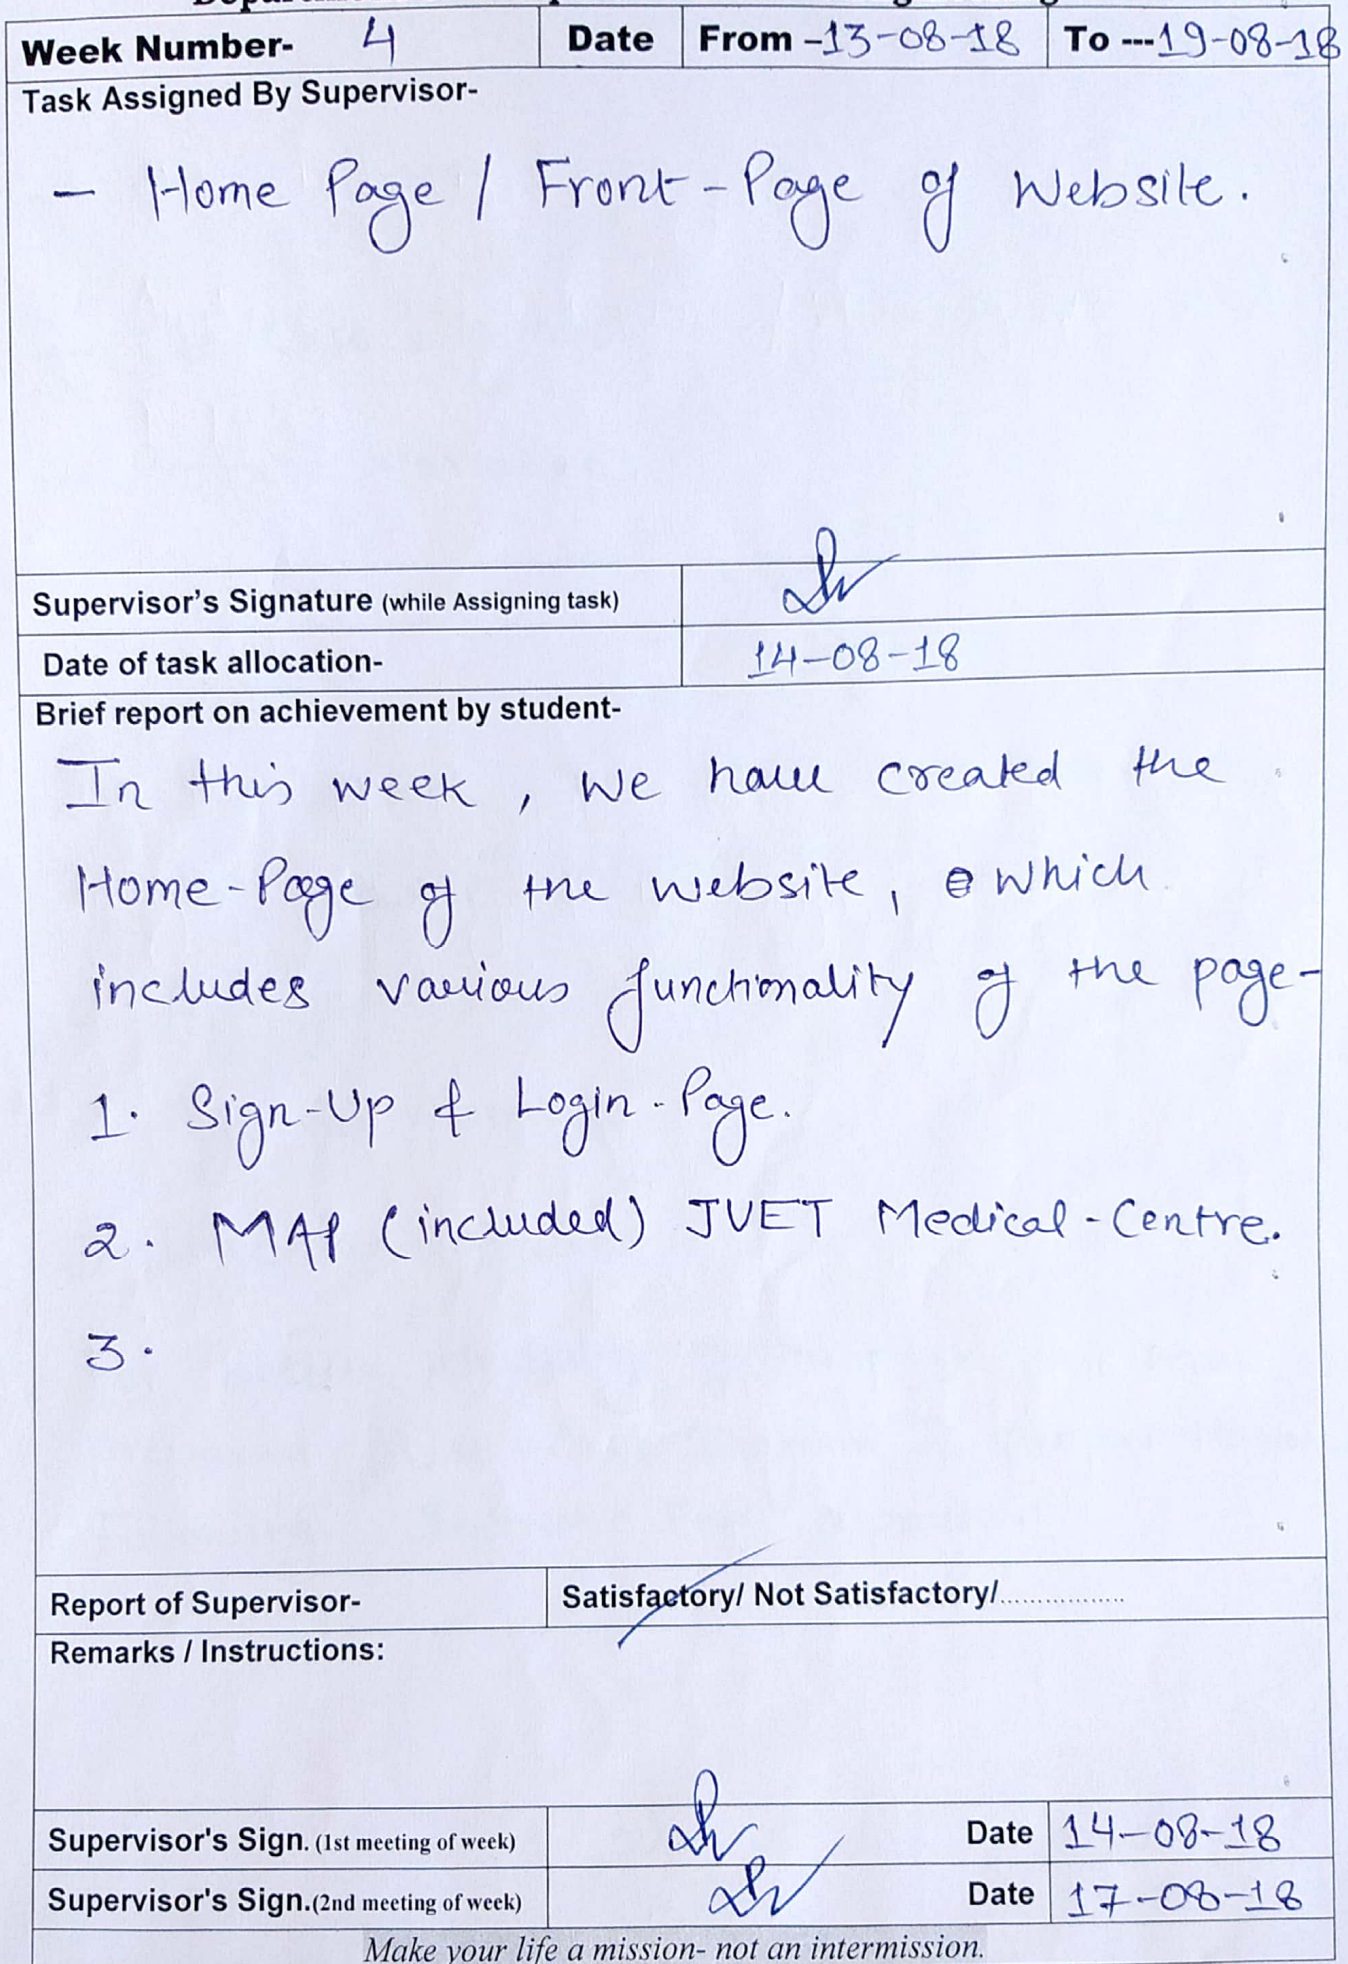 Week Number- 4 Date From -13-08-18 To ---19-08-18
Task Assigned By Supervisor-
- Home Page / Front-Page of Website.
Supervisor's Signature (while Assigning task)
Date of task allocation- 14-08-18
Brief report on achievement by student-
In this week, we have created the
Home-Page of the website, which
includes various functionality of the page-
1. Sign-Up & Login-Page.
2. MAP (included) JUET Medical-Centre.
3.
Report of Supervisor- Satisfactory/ Not Satisfactory/..................
Remarks / Instructions:
Supervisor's Sign. (1st meeting of week) Date 14-08-18
Supervisor's Sign.(2nd meeting of week) Date 17-08-18
Make your life a mission- not an intermission.